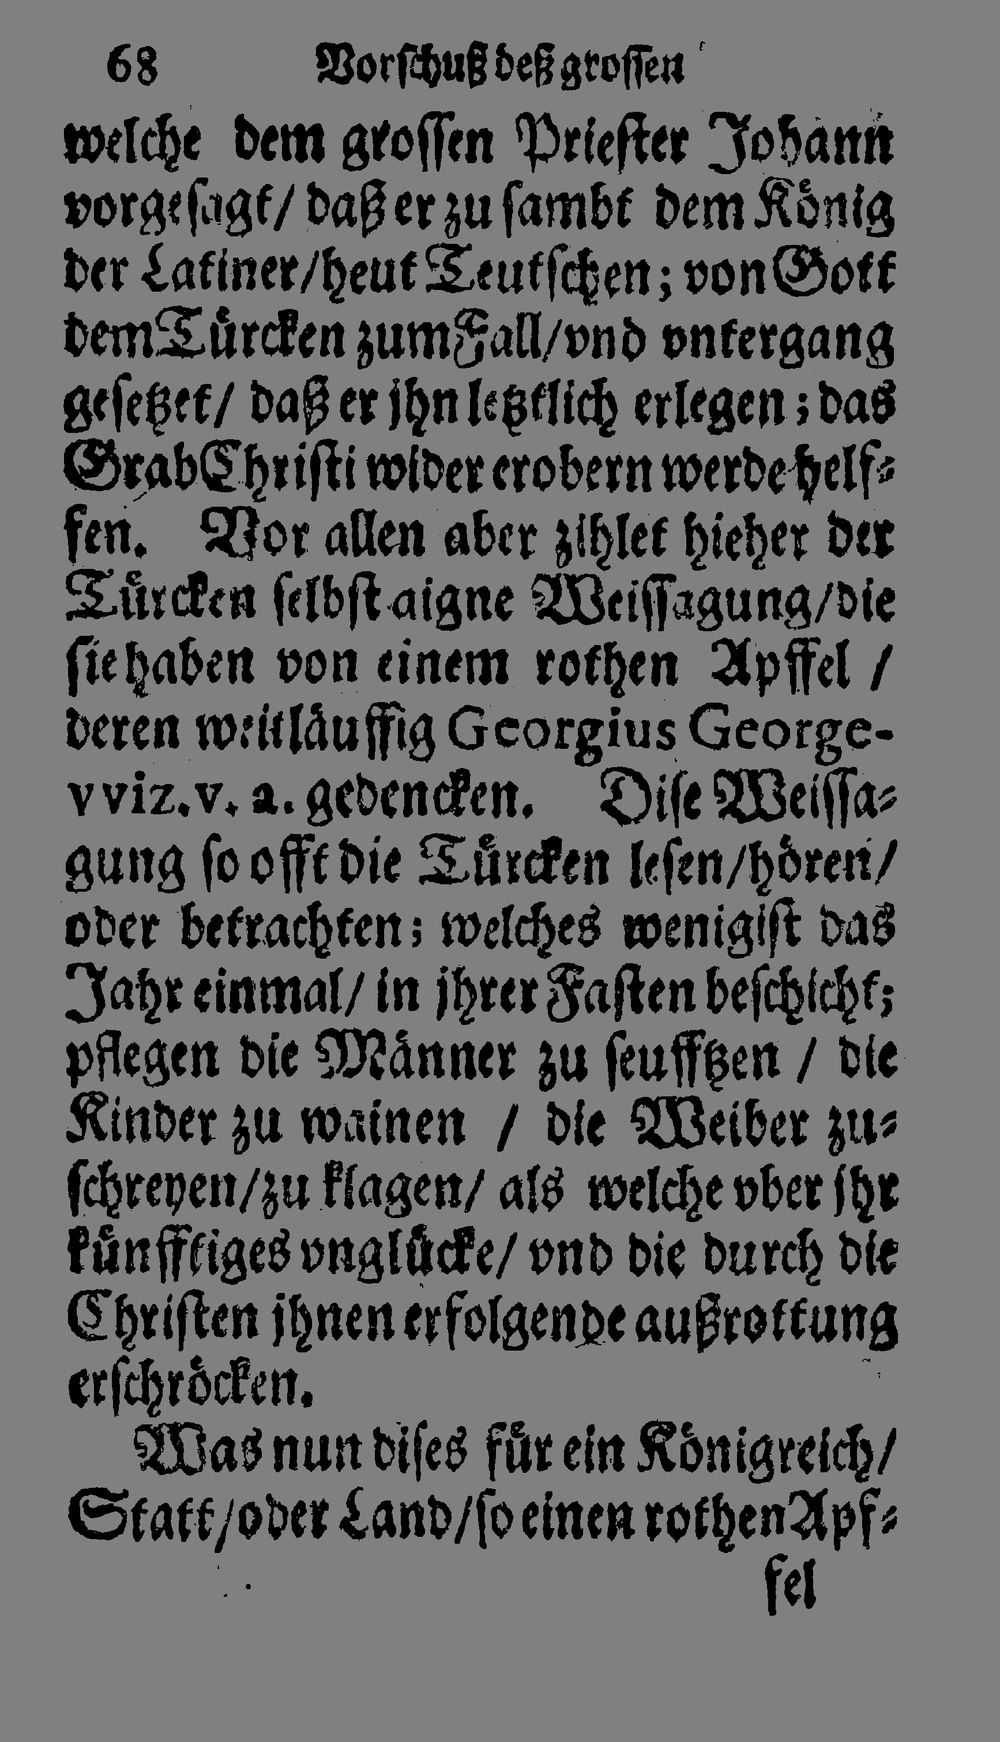 68 Vorschuß deß grossen
welche dem grossen Priester Johann
vorgesagt/ daß er zu sambt dem König
der Latiner/heut Teutschen; von Gott
dem Türcken zum Fall/vnd vntergang
gesetzet/ daß er jhn letztlich erlegen; das
Grab Christi wider erobern werde helf-
fen. Vor allen aber zihlet hieher der
Türcken selbst aigne Weissagung/die
sie haben von einem rothen Apffel /
deren weitläuffig Georgius George-
vviz. v. a. gedencken. Dise Weissa-
gung so offt die Türcken lesen/hören/
oder betrachten; welches wenigist das
Jahr einmal/ in jhrer Fasten beschicht;
pflegen die Männer zu seufftzen / die
Kinder zu wainen / die Weiber zu-
schreyen/zu klagen/ als welche vber jhr
künfftiges vnglücke/ vnd die durch die
Christen jhnen erfolgende außrottung
erschröcken.
Was nun dises für ein Königreich/
Statt/oder Land/so einen rothen Apf-
fel